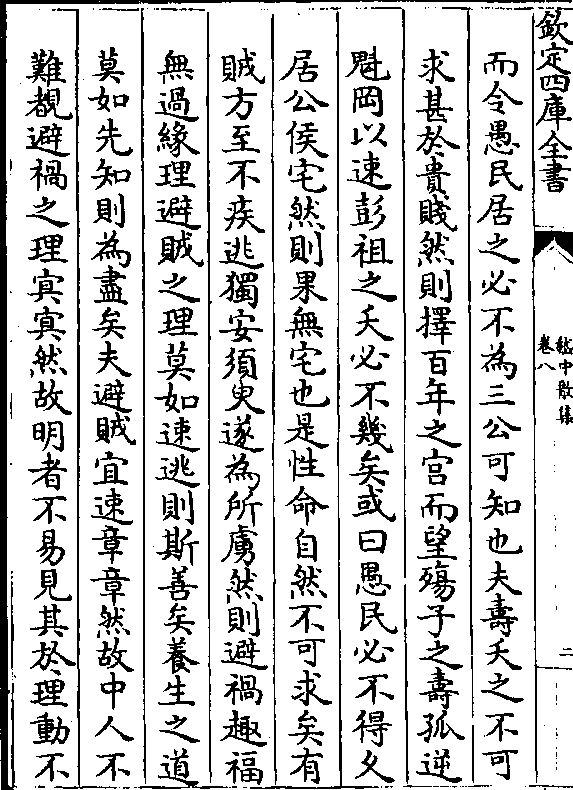 欽定四庫全書
嵇中散集
卷八
二
而令愚民居之必不為三公可知也夫壽夭之不可
求甚於貴賤然則擇百年之宫而望殤子之壽孤逆
魁岡以速彭祖之夭必不幾矣或曰愚民必不得久
居公侯宅然則果無宅也是性命自然不可求矣有
賊方至不疾逃獨安須臾遂為所虜然則避禍趣福
無過緣理避賊之理莫如速逃則斯善矣養生之道
莫如先知則為盡矣夫避賊宜速章章然故中人不
難覩避禍之理㝠㝠然故明者不易見其於理動不